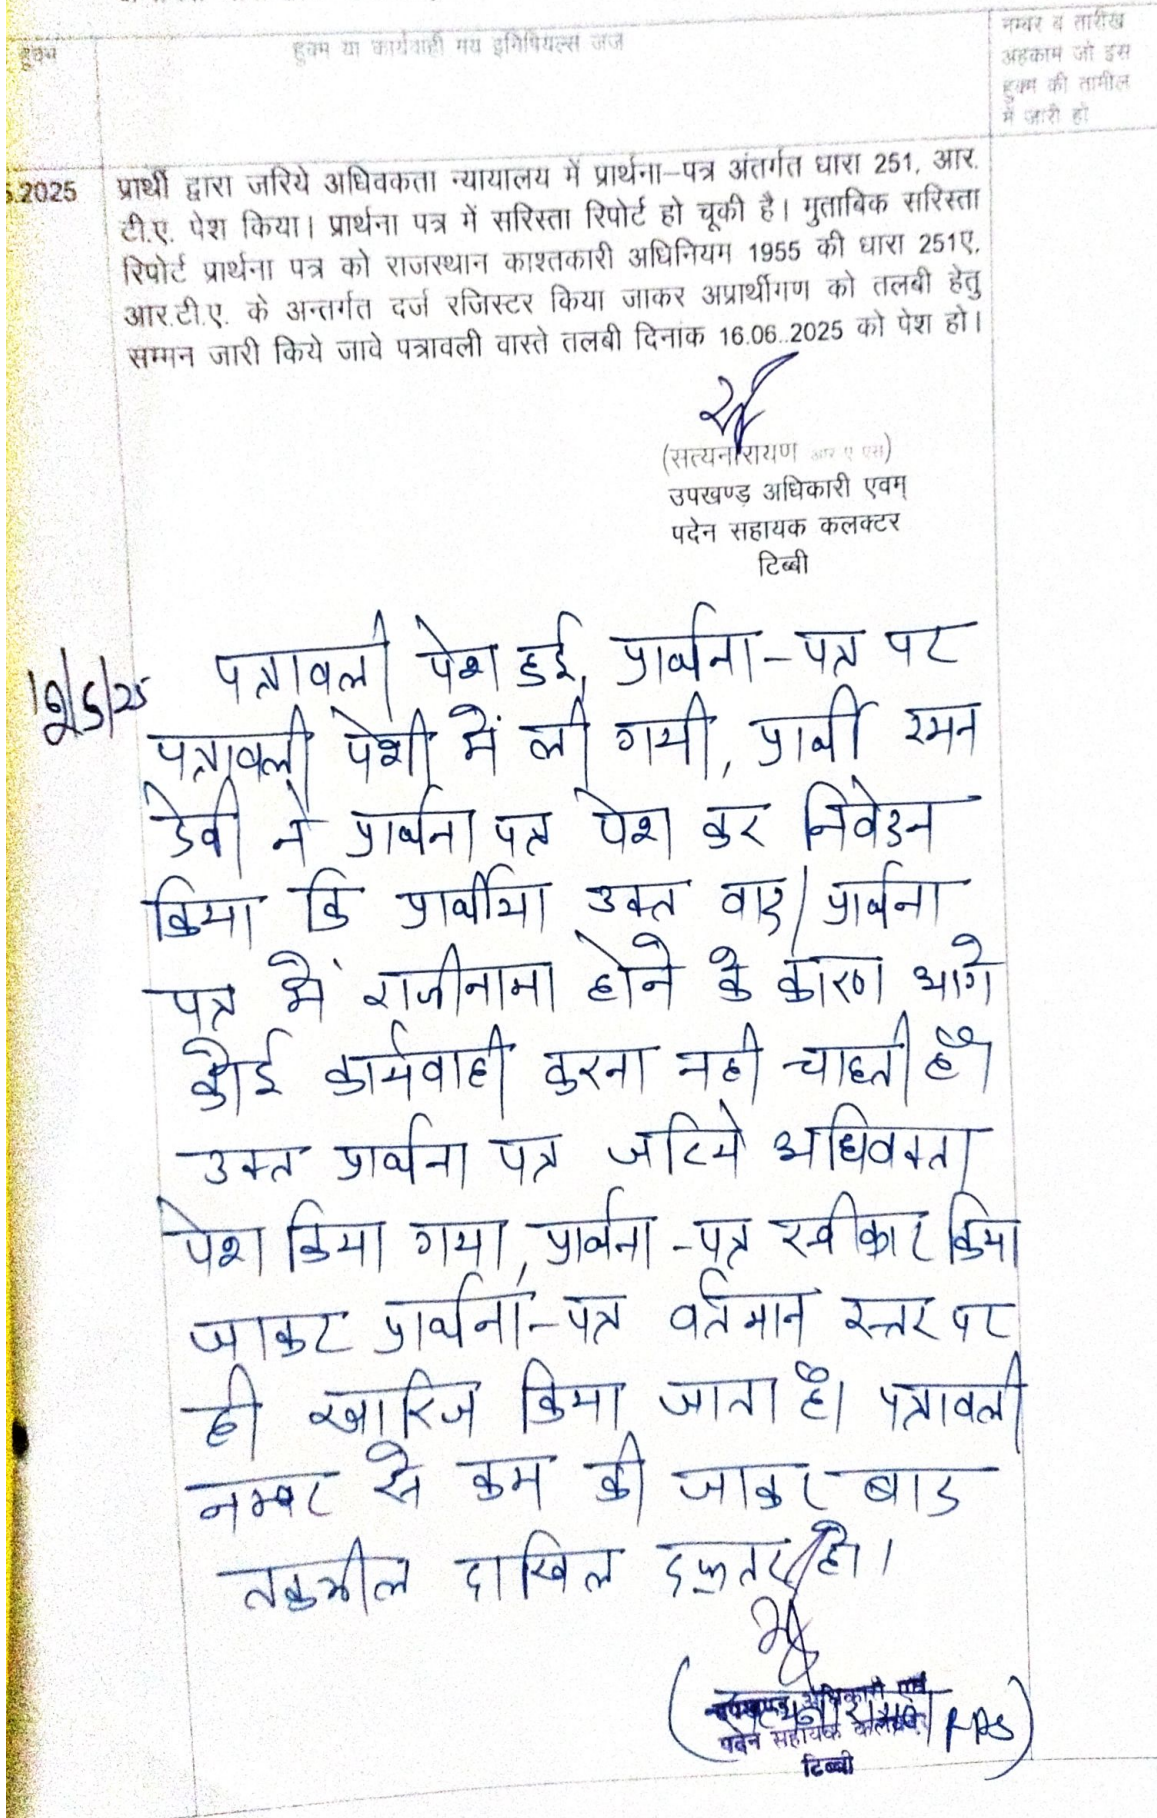 हुक्म
हुक्म या कार्यवाही मय इनिषियल्स जज
नम्बर व तारीख
अहकाम जो इस
हुक्म की तामील
में जारी हो
5.2025
प्रार्थी द्वारा जरिये अधिवकता न्यायालय में प्रार्थना-पत्र अंतर्गत धारा 251, आर.
टी.ए. पेश किया। प्रार्थना पत्र में सरिस्ता रिपोर्ट हो चूकी है। मुताबिक सरिस्ता
रिपोर्ट प्रार्थना पत्र को राजस्थान काश्तकारी अधिनियम 1955 की धारा 251ए,
आर.टी.ए. के अन्तर्गत दर्ज रजिस्टर किया जाकर अप्रार्थीगण को तलबी हेतु
सम्मन जारी किये जावे पत्रावली वास्ते तलबी दिनांक 16.06..2025 को पेश हो।
(सत्यनारायण आर ए एस)
उपखण्ड़ अधिकारी एवम्
पदेन सहायक कलक्टर
टिब्बी
पत्रावली पेश हुई, प्रार्थना-पत्र पर
पत्रावली पेशी में ली गयी, प्रार्थी रमन
देवी ने प्रार्थना पत्र पेश कर निवेदन
किया कि प्रार्थीया उक्त वाद/प्रार्थना
पत्र में राजीनामा होने के कारण आगे
कोई कार्यवाही करना नही चाहती है।
उक्त प्रार्थना पत्र जरिये अधिवक्ता
पेश किया गया, प्रार्थना-पत्र स्वीकार किया
जाकर प्रार्थना-पत्र वर्तमान स्तर पर
ही खारिज किया जाता है। पत्रावली
नम्बर से कम की जाकर बाद
तकमील दाखिल दफ्तर हो।
उपखण्ड अधिकारी एवं
पदेन सहायक कलक्टर
टिब्बी